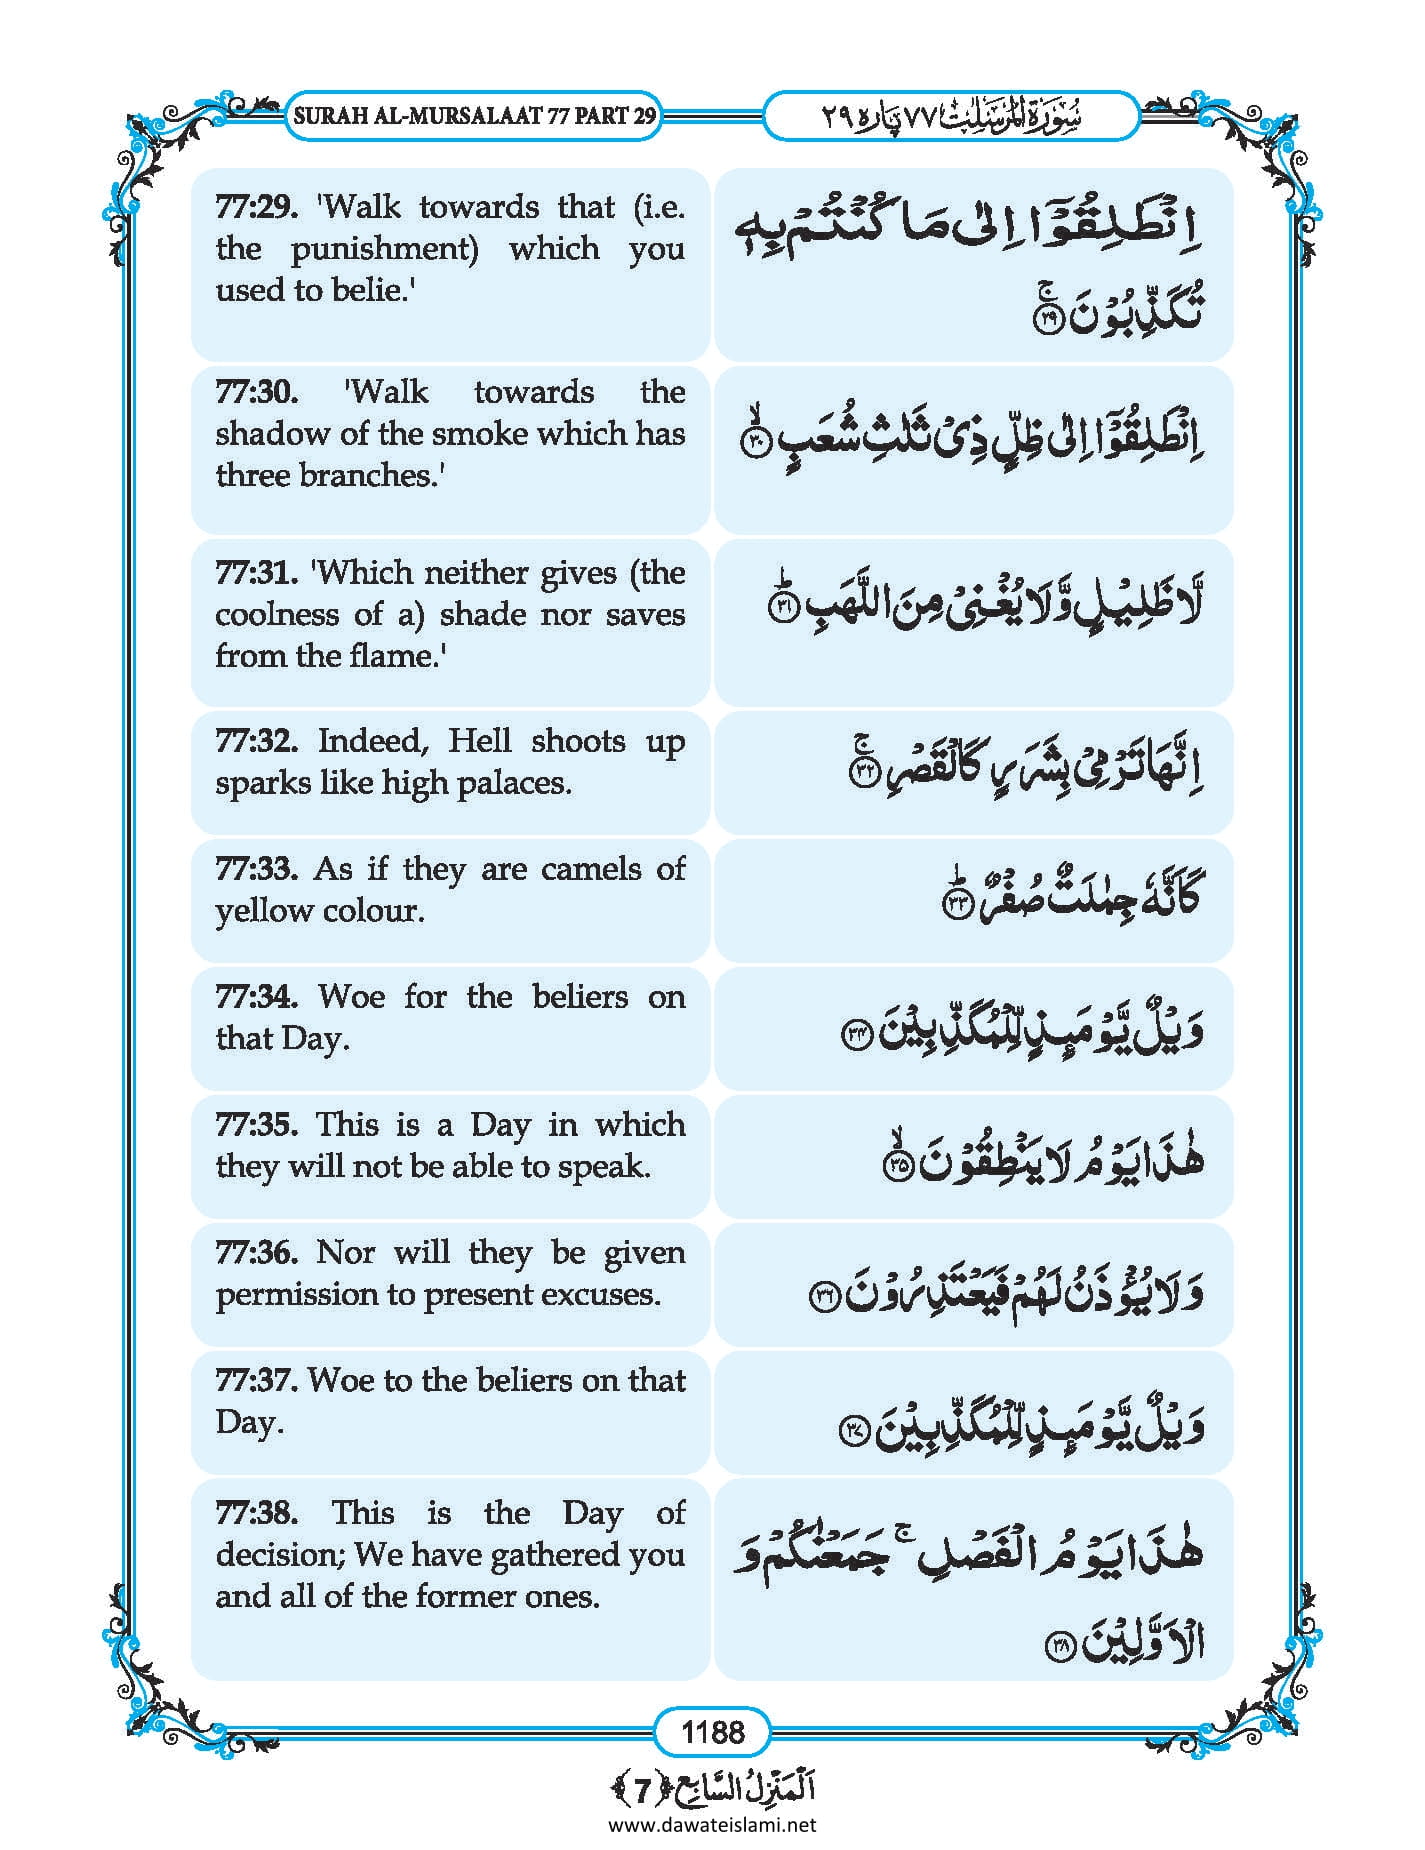 SURAH AL-MURSALAAT 77 PART 29
سُوْرَۃُ الْمُرْسَلٰت ٧٧ پارہ ٢٩
77:29. 'Walk towards that (i.e.
the punishment) which you
used to belie.'
اِنْطَلِقُوْۤا اِلٰى مَا كُنْتُمْ بِهٖ
تُكَذِّبُوْنَ ۚ﴿۲۹﴾
77:30. 'Walk towards the
shadow of the smoke which has
three branches.'
اِنْطَلِقُوْۤا اِلٰى ظِلٍّ ذِیْ ثَلٰثِ شُعَبٍ ۙ﴿۳۰﴾
77:31. 'Which neither gives (the
coolness of a) shade nor saves
from the flame.'
لَّا ظَلِیْلٍ وَّ لَا یُغْنِیْ مِنَ اللَّهَبِ ؕ﴿۳۱﴾
77:32. Indeed, Hell shoots up
sparks like high palaces.
اِنَّهَا تَرْمِیْ بِشَرَرٍ كَالْقَصْرِ ۚ﴿۳۲﴾
77:33. As if they are camels of
yellow colour.
كَاَنَّهٗ جِمٰلَتٌ صُفْرٌ ؕ﴿۳۳﴾
77:34. Woe for the beliers on
that Day.
وَیْلٌ یَّوْمَىٕذٍ لِّلْمُكَذِّبِیْنَ ﴿۳۴﴾
77:35. This is a Day in which
they will not be able to speak.
هٰذَا یَوْمُ لَا یَنْطِقُوْنَ ۙ﴿۳۵﴾
77:36. Nor will they be given
permission to present excuses.
وَ لَا یُؤْذَنُ لَهُمْ فَیَعْتَذِرُوْنَ ﴿۳۶﴾
77:37. Woe to the beliers on that
Day.
وَیْلٌ یَّوْمَىٕذٍ لِّلْمُكَذِّبِیْنَ ﴿۳۷﴾
77:38. This is the Day of
decision; We have gathered you
and all of the former ones.
هٰذَا یَوْمُ الْفَصْلِ ۚ جَمَعْنٰكُمْ وَ
الْاَوَّلِیْنَ ﴿۳۸﴾
1188
اَلْمَنْزِلُ السَّابِع ﴿7﴾
www.dawateislami.net